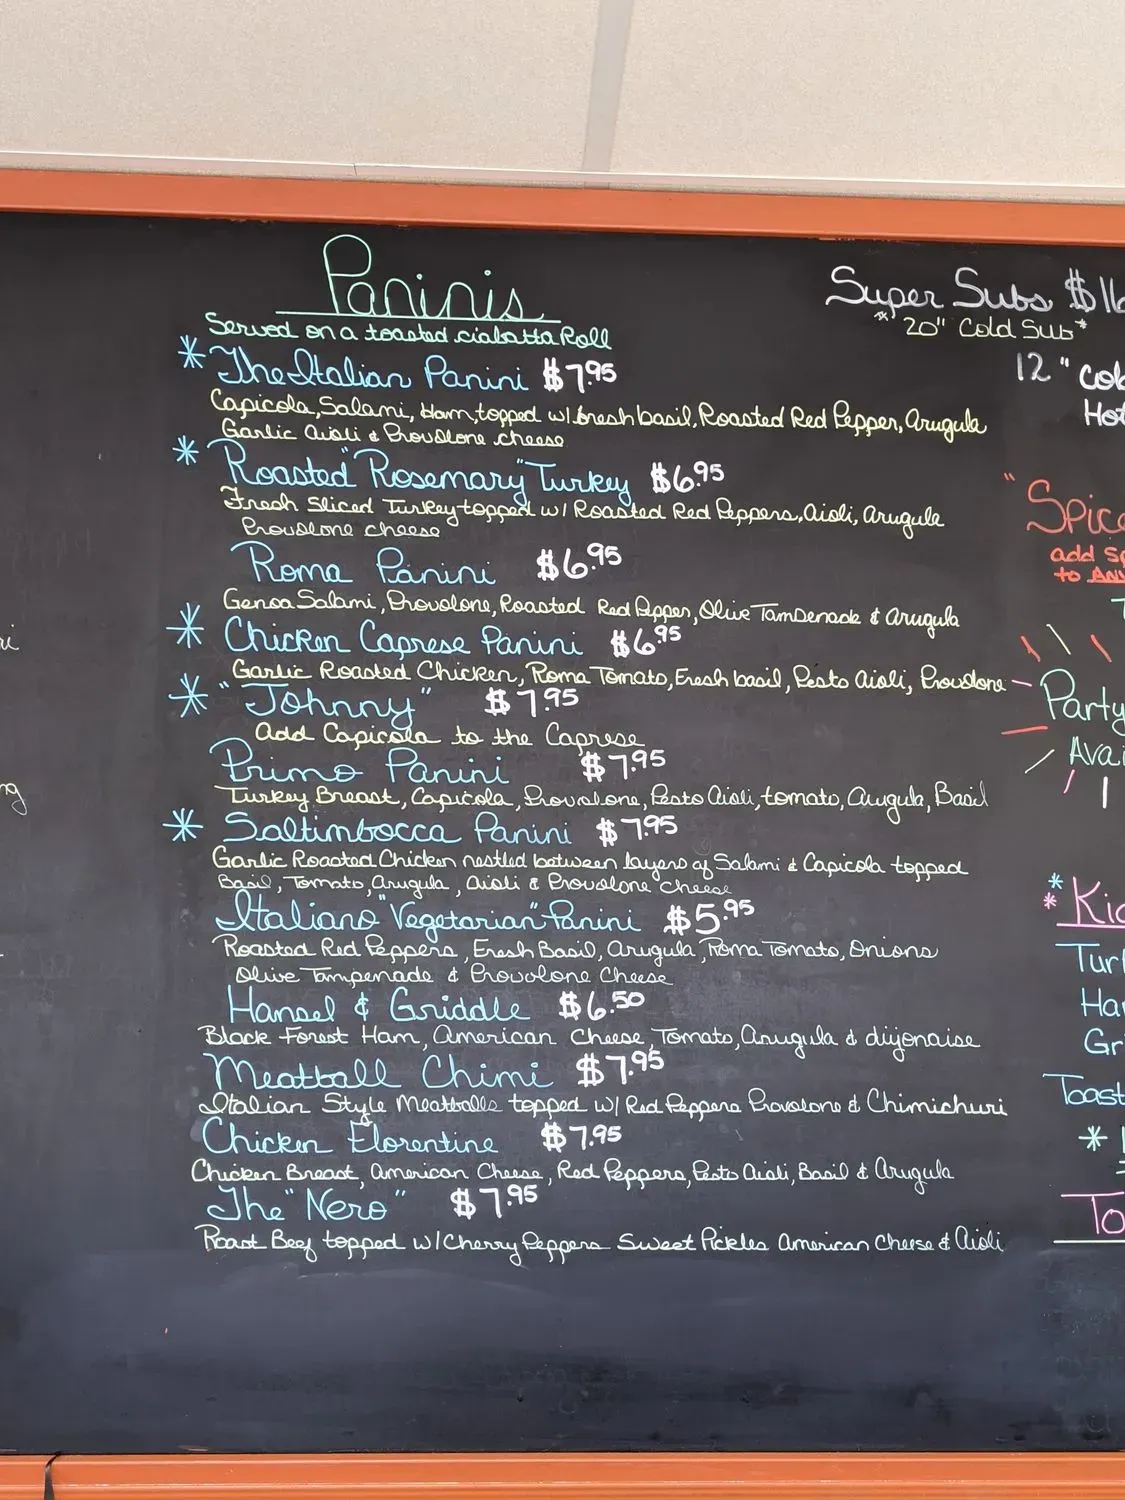 Paninis
Served on a toasted ciabatta Roll
* The Italian Panini $7.95
Capicola, Salami, Ham, topped w/ fresh basil, Roasted Red Pepper, Arugula
Garlic Aioli & Provolone cheese
* Roasted "Rosemary" Turkey $6.95
Fresh Sliced Turkey topped w/ Roasted Red Peppers, Aioli, Arugula
Provolone cheese
Roma Panini $6.95
Genoa Salami, Provolone, Roasted Red Pepper, Olive Tampenade & Arugula
* Chicken Caprese Panini $6.95
Garlic Roasted Chicken, Roma Tomato, Fresh basil, Pesto Aioli, Provolone
* "Johnny" $7.95
add Capicola to the Caprese
Primo Panini $7.95
Turkey Breast, Capicola, Provolone, Pesto Aioli, tomato, Arugula, Basil
* Saltimbocca Panini $7.95
Garlic Roasted Chicken nestled between layers of Salami & Capicola topped
Basil, Tomato, Arugula, Aioli & Provolone cheese
Italiano "Vegetarian" Panini $5.95
Roasted Red Peppers, Fresh Basil, Arugula, Roma Tomato, Onions
Olive Tampenade & Provolone Cheese
Hansel & Griddle $6.50
Black Forest Ham, American Cheese, Tomato, Arugula & dijonaise
Meatball Chimi $7.95
Italian Style Meatballs topped w/ Red Peppers Provolone & Chimichuri
Chicken Florentine $7.95
Chicken Breast, American Cheese, Red Peppers, Pesto Aioli, Basil & Arugula
The "Nero" $7.95
Roast Beef topped w/ Cherry Peppers Sweet Pickles American Cheese & Aioli
Super Subs $16
* 20" Cold Sub *
12" Col
Hot
"Spice
add Sp
to Any
Party
Avai
* * Kid
Tur
Ha
Gr
Toast
*
To